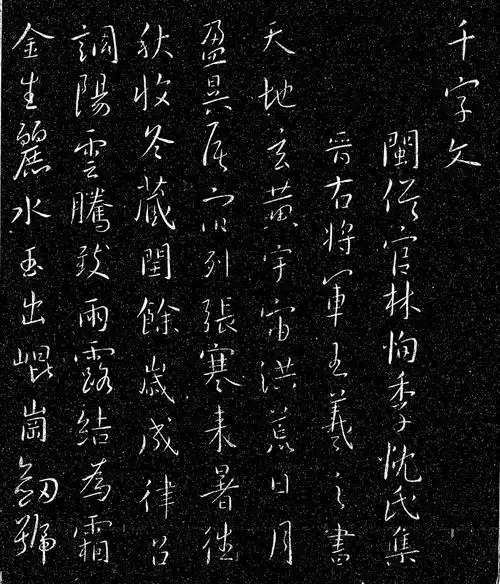 千字文
閩侯官林恂季沈氏集
晉右將軍王羲之書
天地玄黃宇宙洪荒日月
盈昃辰宿列張寒來暑往
秋收冬藏閏餘歲成律呂
調陽雲騰致雨露結為霜
金生麗水玉出崐崗劒號